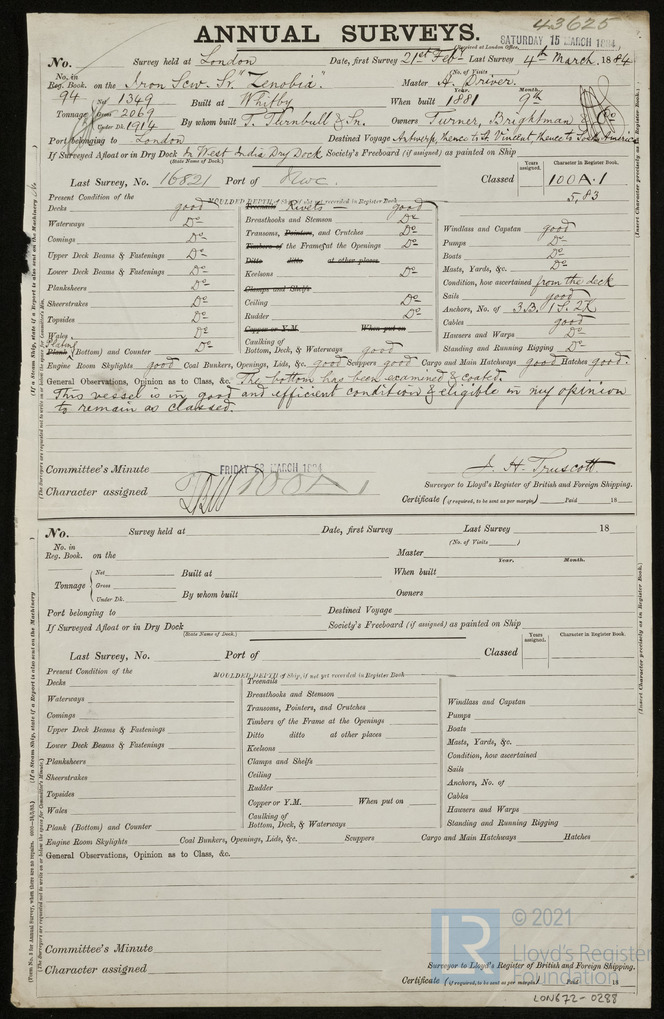 43625
ANNUAL SURVEYS.
(Received at London Office,
SATURDAY 15 MARCH 1884
No. Survey held at London Date, first Survey 21st Feby Last Survey 4th March 1884
(No. of Visits )
No. in Reg. Book. 94 on the Iron Scw. Sr. "Zenobia" Master A. Driver.
Year. Month.
Tonnage Net 1349 Built at Whitby When built 1881 9th
Gross 2069
Under Dk. 1914 By whom built T. Turnbull & Sn. Owners Turner, Brightman & Co
Port belonging to London Destined Voyage Antwerp, thence to St. Vincent, thence to South America
If Surveyed Afloat or in Dry Dock In West India Dry Dock Society's Freeboard (if assigned) as painted on Ship
(State Name of Dock.)
Years assigned. Character in Register Book.
Last Survey, No. 16821 Port of Nwc. Classed 100A.1
5,83
Present Condition of the MOULDED DEPTH of Ship, if not yet recorded in Register Book
Decks good Treenails Rivets good
Waterways Do Breasthooks and Stemson Do
Comings Do Transoms, Pointers, and Crutches Do Windlass and Capstan good
Upper Deck Beams & Fastenings Do Timbers of the Frames at the Openings Do Pumps Do
Ditto ditto at other places Boats Do
Lower Deck Beams & Fastenings Do Keelsons Do Masts, Yards, &c. Do
Planksheers Do Clamps and Shelfs Condition, how ascertained from the deck
Sheerstrakes Do Ceiling Do Sails good
Topsides Do Rudder Do Anchors, No. of 3B. 1S. 2K
Wales Do Copper or Y.M. When put on Cables good
Plating Plank (Bottom) and Counter Do Caulking of Bottom, Deck, & Waterways good Hawsers and Warps Do
Standing and Running Rigging Do
Engine Room Skylights good Coal Bunkers, Openings, Lids, &c. good Scuppers good Cargo and Main Hatchways good Hatches good.
General Observations, Opinion as to Class, &c. The bottom has been examined & coated.
This vessel is in good and efficient condition & eligible in my opinion
to remain as classed.
Committee's Minute FRIDAY 28 MARCH 1884 J. H. Truscott
Character assigned 100A1 Surveyor to Lloyd's Register of British and Foreign Shipping.
Certificate (if required, to be sent as per margin) Paid 18
No. Survey held at Date, first Survey Last Survey 18
(No. of Visits )
No. in Reg. Book. on the Master
Year. Month.
Tonnage Net Built at When built
Gross
Under Dk. By whom built Owners
Port belonging to Destined Voyage
If Surveyed Afloat or in Dry Dock Society's Freeboard (if assigned) as painted on Ship
(State Name of Dock.)
Years assigned. Character in Register Book.
Last Survey, No. Port of Classed
Present Condition of the MOULDED DEPTH of Ship, if not yet recorded in Register Book
Decks Treenails
Waterways Breasthooks and Stemson
Comings Transoms, Pointers, and Crutches Windlass and Capstan
Upper Deck Beams & Fastenings Timbers of the Frame at the Openings Pumps
Ditto ditto at other places Boats
Lower Deck Beams & Fastenings Keelsons Masts, Yards, &c.
Planksheers Clamps and Shelfs Condition, how ascertained
Sheerstrakes Ceiling Sails
Topsides Rudder Anchors, No. of
Wales Copper or Y.M. When put on Cables
Plank (Bottom) and Counter Caulking of Bottom, Deck, & Waterways Hawsers and Warps
Standing and Running Rigging
Engine Room Skylights Coal Bunkers, Openings, Lids, &c. Scuppers Cargo and Main Hatchways Hatches
General Observations, Opinion as to Class, &c.
Committee's Minute
Character assigned Surveyor to Lloyd's Register of British and Foreign Shipping.
Certificate (if required, to be sent as per margin) Paid 18
(Insert Character precisely as in Register Book.)
(Insert Character precisely as in Register Book.)
LR © 2021
Lloyd's Register
Foundation
LON672-0288